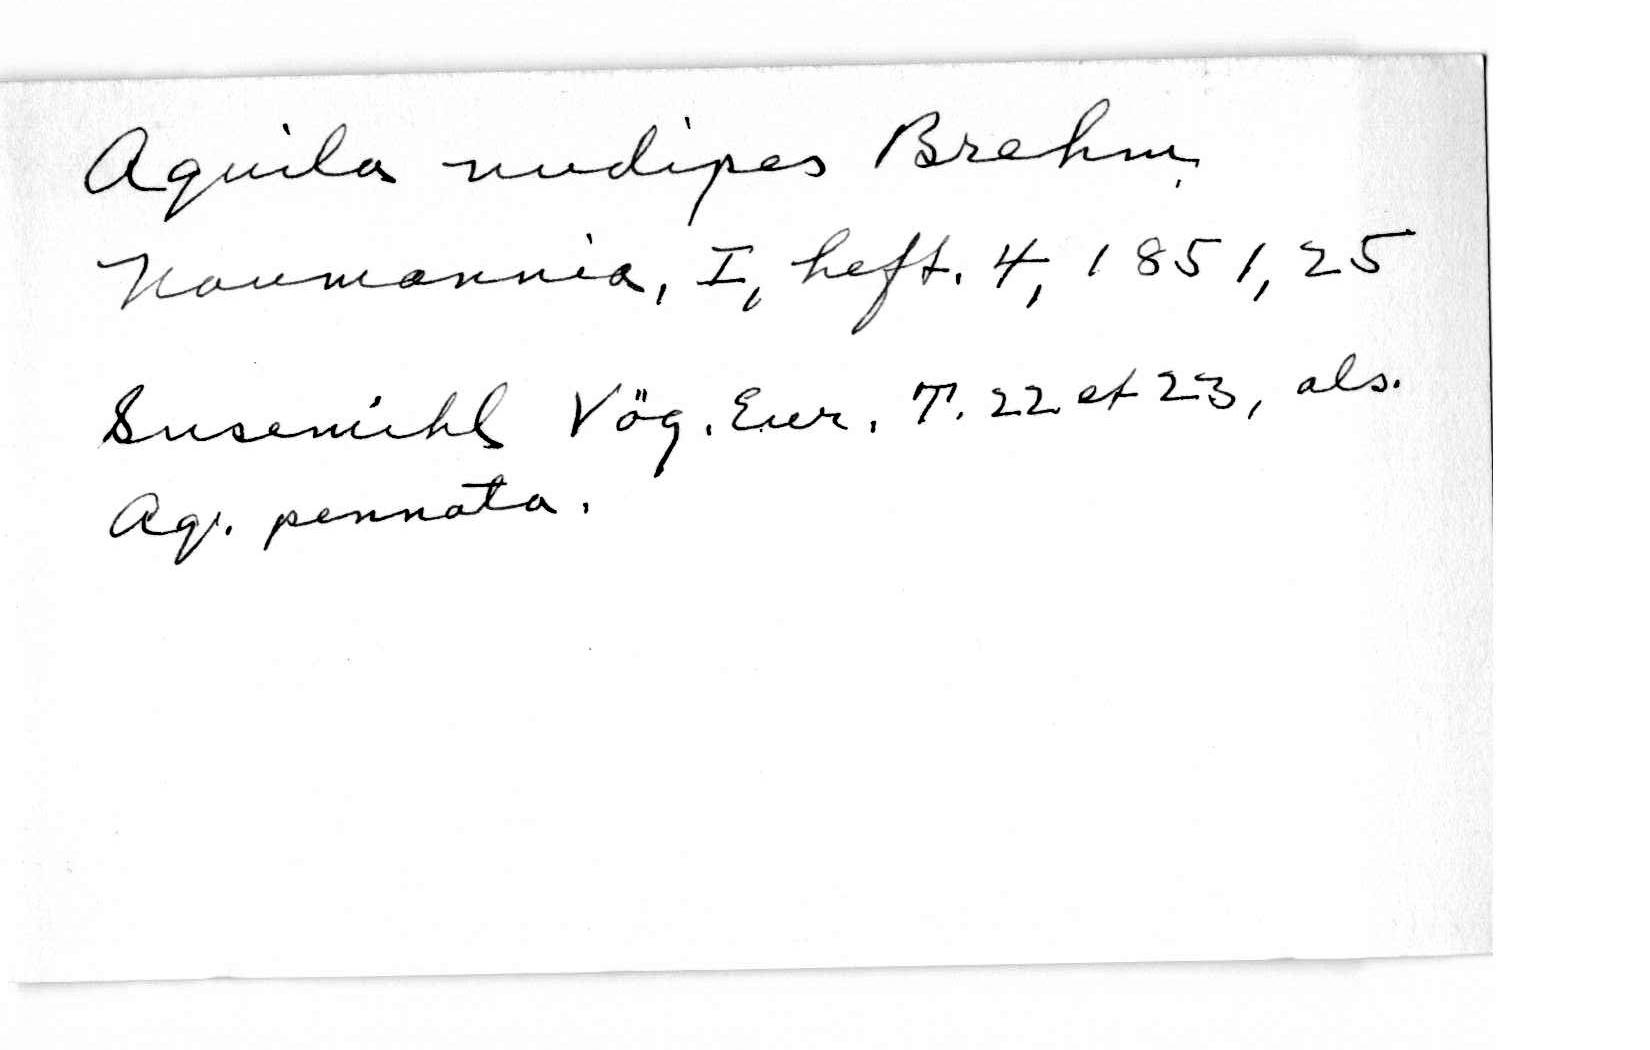 Aquila nudipes Brehm,
Naumannia, I, heft. 4, 1851, 25
Susemihl Vög. Eur. T. 22 et 23, als.
Aq. pennata.